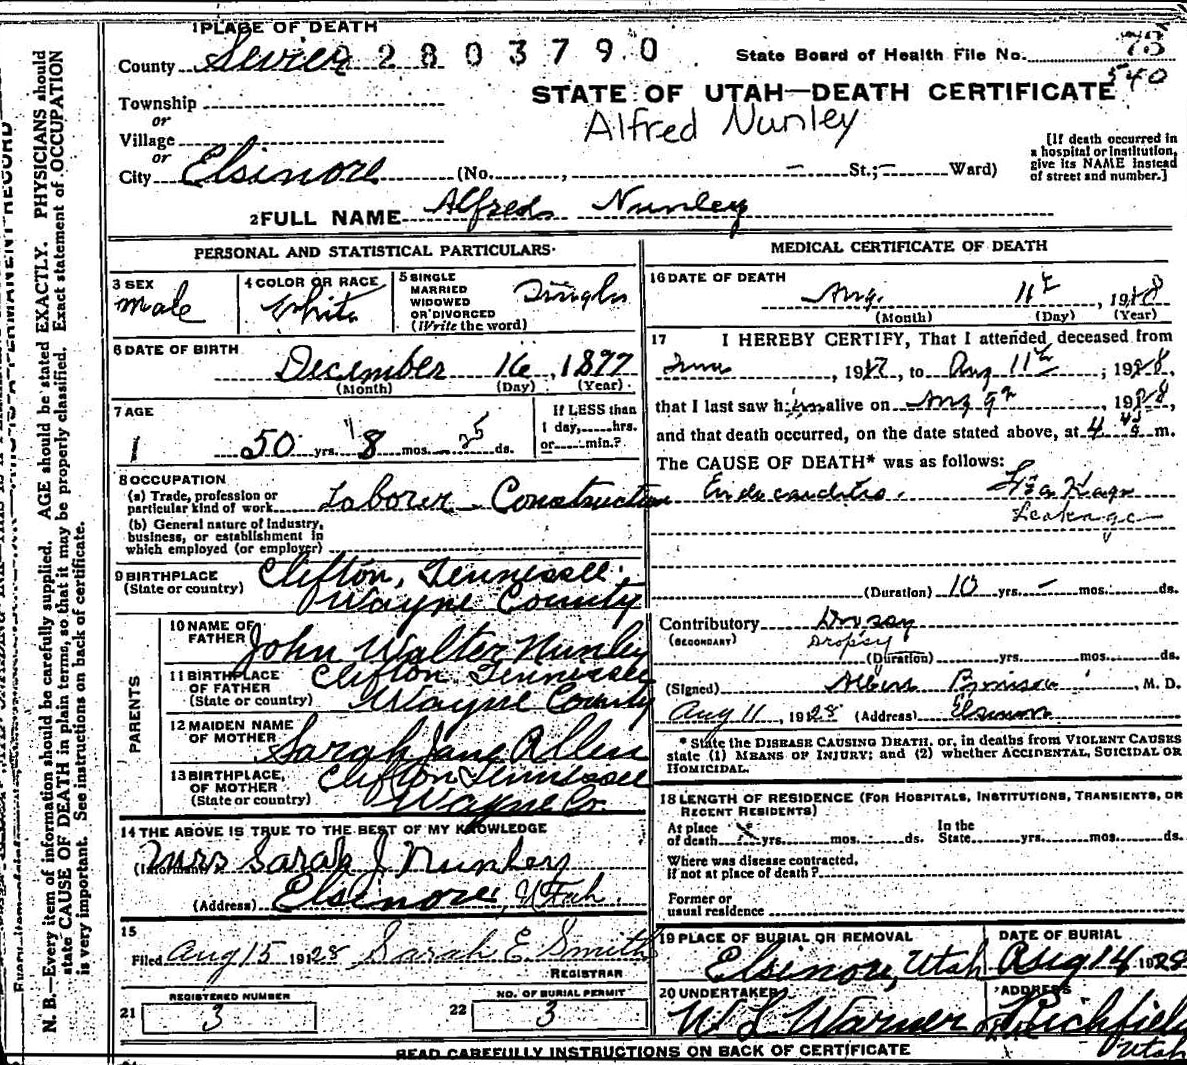 1 PLACE OF DEATH
County Sevier 2803790
State Board of Health File No. 78
540
STATE OF UTAH—DEATH CERTIFICATE
Alfred Nunley
Township
or
Village
or
City Elsinore (No. , — St.; — Ward)
[If death occurred in
a hospital or institution,
give its NAME instead
of street and number.]
2 FULL NAME Alfred Nunley
PERSONAL AND STATISTICAL PARTICULARS
3 SEX
male
4 COLOR OR RACE
White
5 SINGLE
MARRIED
WIDOWED
OR DIVORCED
(Write the word)
Single
6 DATE OF BIRTH
December 16, 1877
(Month) (Day) (Year)
7 AGE
50 yrs. 8 mos. 25 ds.
If LESS than
1 day, hrs.
or min.?
8 OCCUPATION
(a) Trade, profession or
particular kind of work Laborer - Construction
(b) General nature of industry,
business, or establishment in
which employed (or employer)
9 BIRTHPLACE
(State or country)
Clifton, Tennessee,
Wayne County
PARENTS
10 NAME OF
FATHER
John Walter Nunley
11 BIRTHPLACE
OF FATHER
(State or country)
Clifton Tennessee
Wayne County
12 MAIDEN NAME
OF MOTHER
Sarah Jane Allen
13 BIRTHPLACE
OF MOTHER
(State or country)
Clifton Tennessee
Wayne Co.
14 THE ABOVE IS TRUE TO THE BEST OF MY KNOWLEDGE
(Informant) Mrs Sarah J Nunley
(Address) Elsinore, Utah.
15
Filed Aug 15 1928 Sarah E Smith
REGISTRAR
21 REGISTERED NUMBER
3
22 NO. OF BURIAL PERMIT
3
MEDICAL CERTIFICATE OF DEATH
16 DATE OF DEATH
Aug. 11th, 1928
(Month) (Day) (Year)
17 I HEREBY CERTIFY, That I attended deceased from
, 19 , to Aug 11th, 1928,
that I last saw him alive on Aug 9th, 1928,
and that death occurred, on the date stated above, at 4 m.
The CAUSE OF DEATH* was as follows:
Endocarditis.
Leakage
(Duration) 10 yrs. — mos. ds.
Contributory Dropsy
(SECONDARY) Dropsy
(Duration) yrs. mos. ds.
(Signed) Albert , M. D.
Aug 11, 1928 (Address) Elsinore
* State the DISEASE CAUSING DEATH, or, in deaths from VIOLENT CAUSES
state (1) MEANS OF INJURY; and (2) whether ACCIDENTAL, SUICIDAL OR
HOMICIDAL.
18 LENGTH OF RESIDENCE (FOR HOSPITALS, INSTITUTIONS, TRANSIENTS, OR
RECENT RESIDENTS)
At place
of death yrs. mos. ds.
In the
State yrs. mos. ds.
Where was disease contracted,
if not at place of death?
Former or
usual residence
19 PLACE OF BURIAL OR REMOVAL
Elsinore, Utah
DATE OF BURIAL
Aug 14 1928
20 UNDERTAKER
W L Warner
ADDRESS
Richfield
Utah
READ CAREFULLY INSTRUCTIONS ON BACK OF CERTIFICATE
N. B.—Every item of information should be carefully supplied. AGE should be stated EXACTLY. PHYSICIANS should
state CAUSE OF DEATH in plain terms, so that it may be properly classified. Exact statement of OCCUPATION
is very important. See instructions on back of certificate.